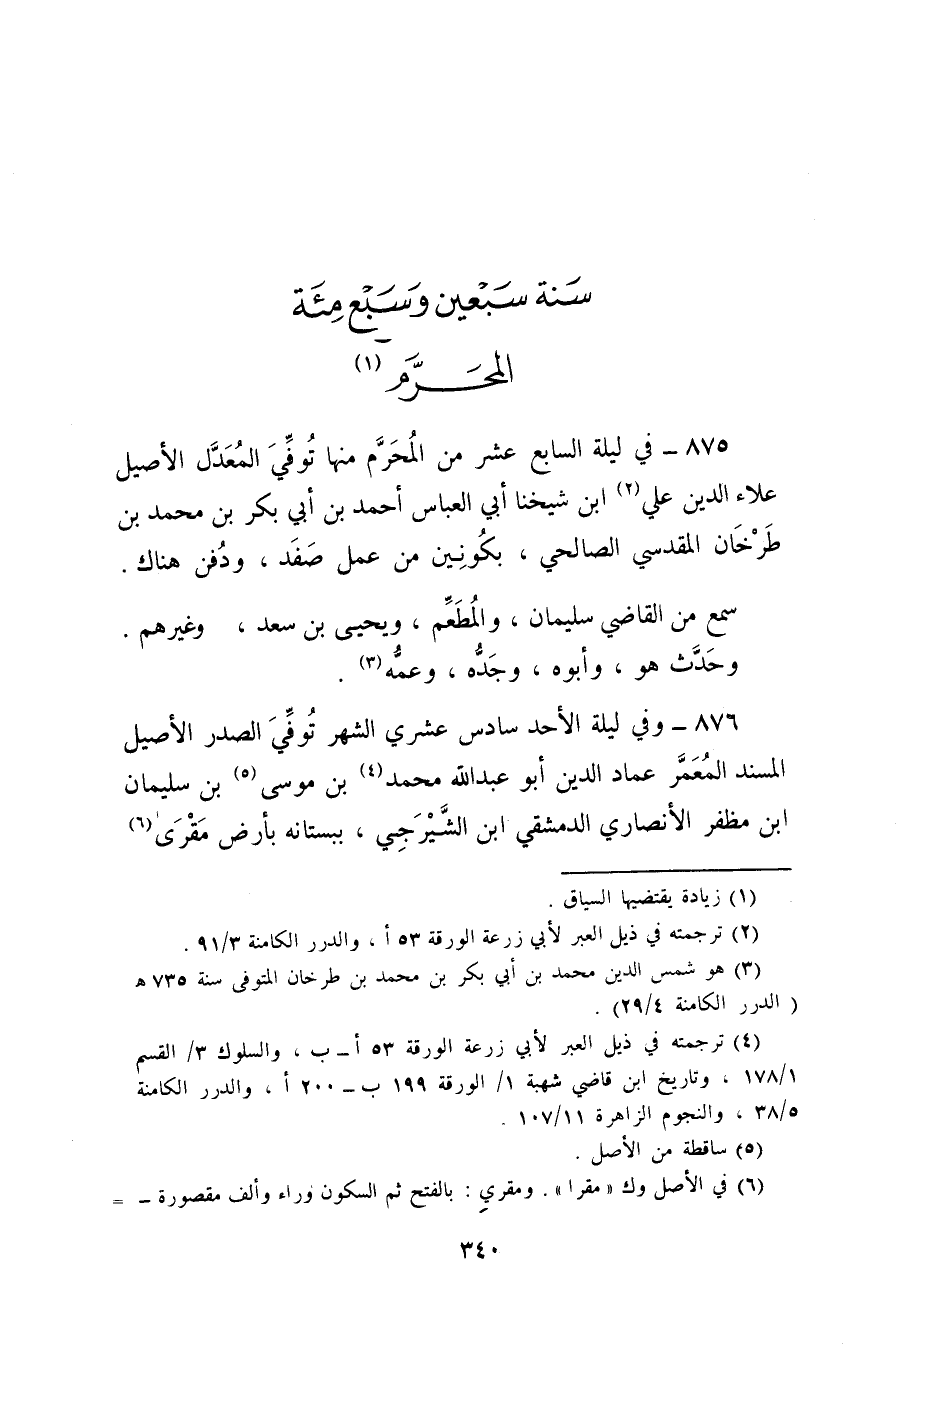 سَنة سَبْعين وَسَبْع مِئَة
المحَـرَّم (١)
٨٧٥ ـ في ليلة السابع عشر من المُحَرَّم منها تُوفِّيَ المُعَدَّل الأصيل
علاء الدين علي(٢) ابن شيخنا أبي العباس أحمد بن أبي بكر بن محمد بن
طَرْخَان المقدسي الصالحي ، بكُونِين من عمل صَفَد ، ودُفن هناك .
سمع من القاضي سليمان ، والمُطَعِّم ، ويحيى بن سعد ، وغيرهم .
وحَدَّث هو ، وأبوه ، وجَدُّه ، وعمُّه(٣) .
٨٧٦ ـ وفي ليلة الأحد سادس عشري الشهر تُوفِّيَ الصدر الأصيل
المسند المُعَمَّر عماد الدين أبو عبدالله محمد(٤) بن موسى(٥) بن سليمان
ابن مظفر الأنصاري الدمشقي ابن الشَّيْرَجِي ، ببستانه بأرض مَقْرَىٰ(٦)
(١) زيادة يقتضيها السياق .
(٢) ترجمته في ذيل العبر لأبي زرعة الورقة ٥٣ أ ، والدرر الكامنة ٩١/٣ .
(٣) هو شمس الدين محمد بن أبي بكر بن محمد بن طرخان المتوفى سنة ٧٣٥ ه
( الدرر الكامنة ٢٩/٤) .
(٤) ترجمته في ذيل العبر لأبي زرعة الورقة ٥٣ أ ـ ب ، والسلوك ٣/ القسم
١٧٨/١ ، وتاريخ ابن قاضي شهبة ١/ الورقة ١٩٩ ب ـ ٢٠٠ أ ، والدرر الكامنة
٣٨/٥ ، والنجوم الزاهرة ١٠٧/١١ .
(٥) ساقطة من الأصل .
(٦) في الأصل وك «مقرا» . ومقري : بالفتح ثم السكون وراء وألف مقصورة ـ =
٣٤٠